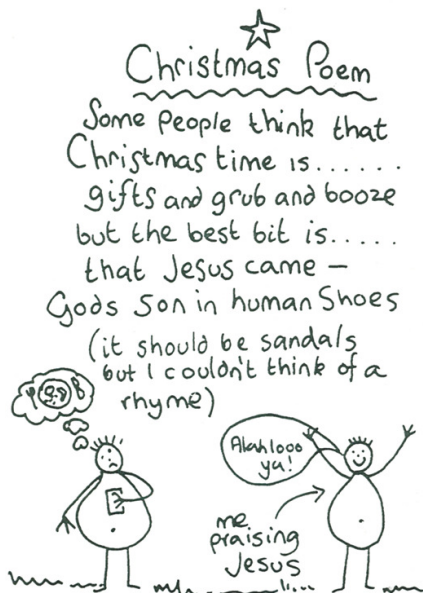 Christmas Poem
Some people think that
Christmas time is......
gifts and grub and booze
but the best bit is.....
that Jesus came –
Gods son in human Shoes
(it should be sandals
but I couldn't think of a
rhyme)
Alahlooo
ya!
me
praising
Jesus